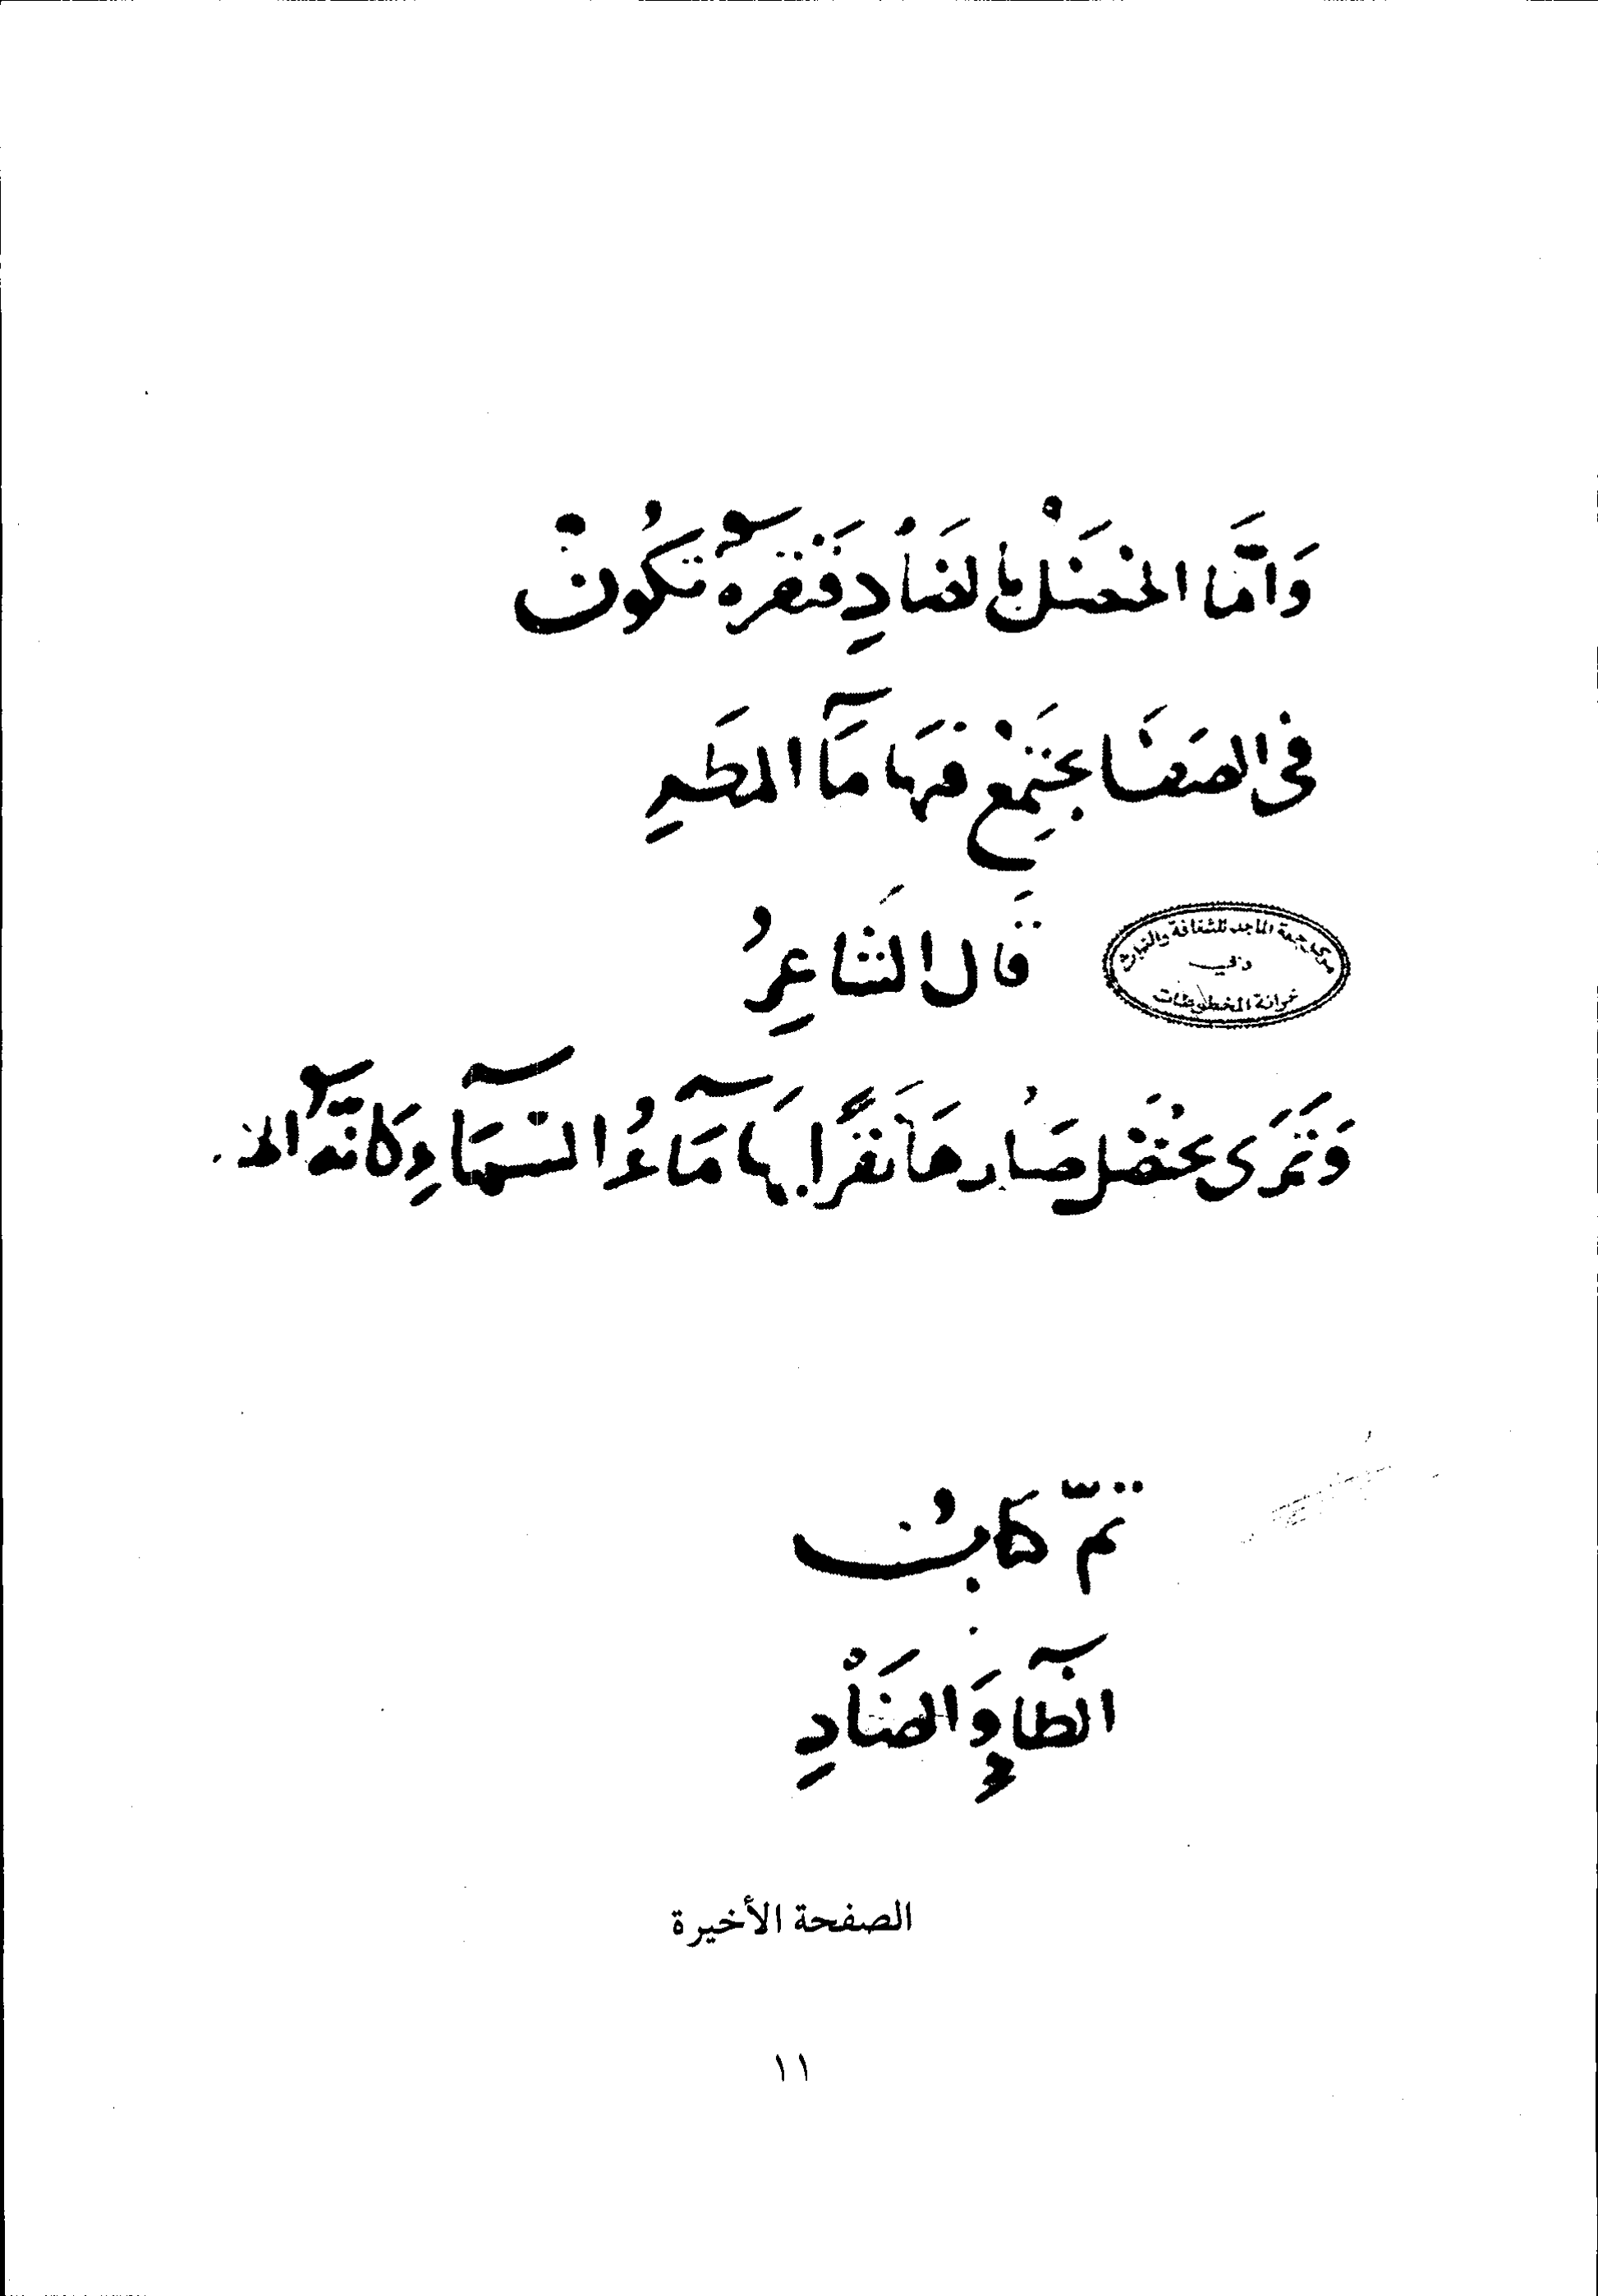 وَأمَّا الخضَلْ بالضَادِ فنقرهُ تكُونْ
في الصَفَا يجتَمِعْ فيهَا مَآ المطَرِ
قَال الشَاعِرُ
مركز جمعة الماجد للثقافة والتراث
دبي
خزانة المخطوطات
وَترَى بحُضَل صَادرهَا نقرًا بهَا مَآءُ السَّمَآءِ وكَانَّهُ
تمّ كتَابُ
الظآءِ وَالضَادِ
الصفحة الأخيرة
١١